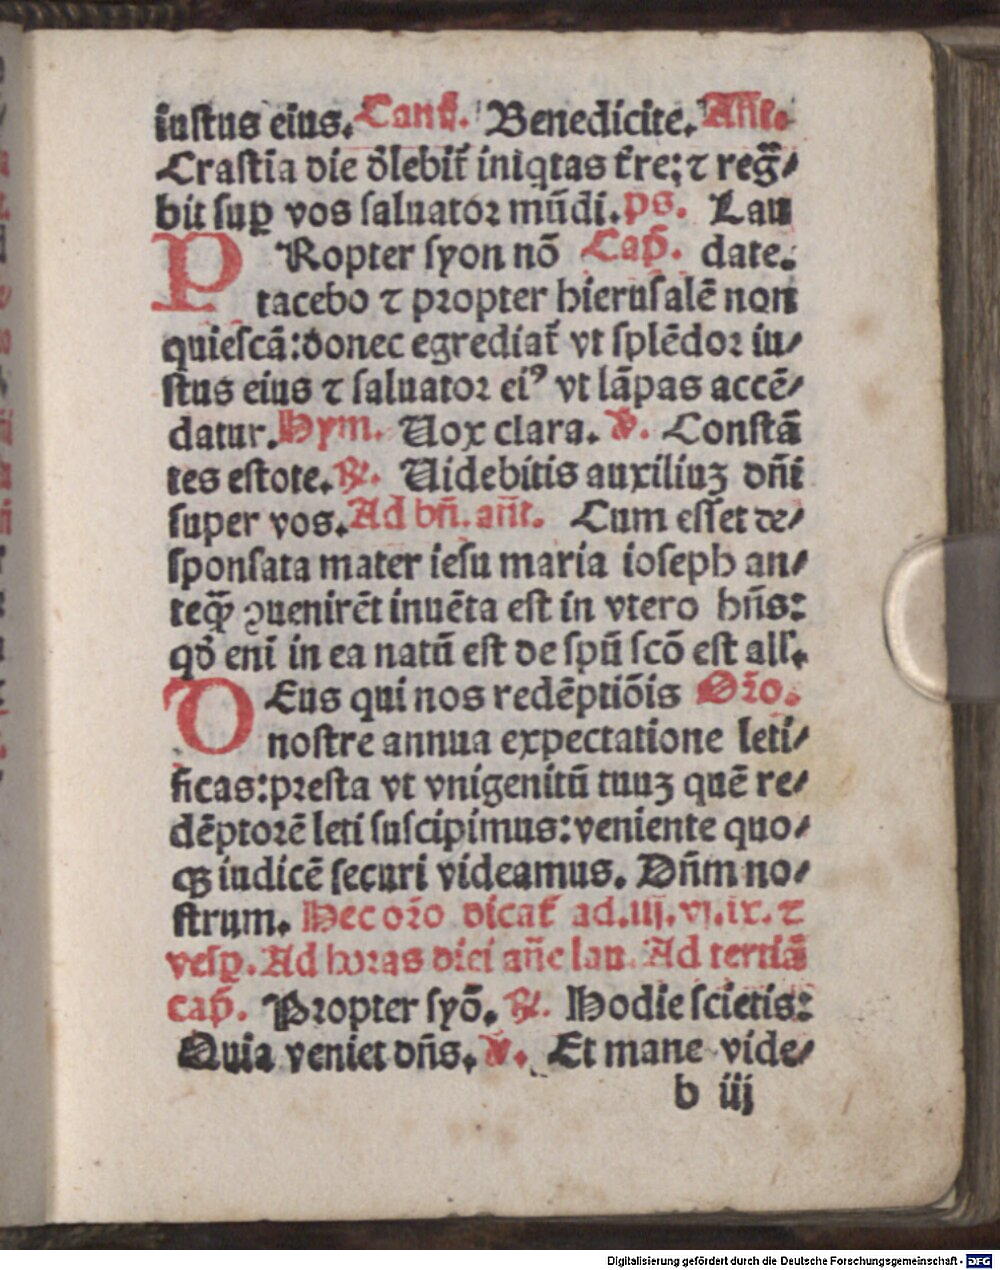 iustus eius. Cant̃. Benedicite. Añt.
Crastīa die d̄lebit᷑ iniq̇tas t̃re: ⁊ reg̃/
bit suꝑ vos saluator mūdi. ps. Lau
PRopter syon nō Cap̄. date.
tacebo ⁊ propter hierusalē non
quiescā: donec egrediat᷑ vt splēdor iu/
stus eius ⁊ saluator eiꝰ vt lāpas accē/
datur. Hym. Uox clara. ℣. Constā
tes estote. ℟. Uidebitis auxiliuꝫ dn̄i
super vos. Ad bn̄. an̄t. Cum esset de/
sponsata mater iesu maria ioseph an/
teq̄ꝫ ꝯuenirēt inuēta est in vtero hn̄s:
qd̄ enī in ea natū est de spū scō est all'.
DEus qui nos redēptiōis Oro.
nostre annua expectatione leti/
ficas: presta vt vnigenitū tuuꝫ quē re/
dēptorē leti suscipimus: veniente quo/
qꝫ iudicē securi videamus. Dn̄m no/
strum. Hec oro dicat᷑ ad .iij. vj. ix. ⁊
vesꝑ. Ad horas diei an̄e lau. Ad tertiā
cap̄. Propter syō. ℟. Hodie scietis:
Quia veniet dn̄s. ℣. Et mane vide/
b iij
Digitalisierung gefördert durch die Deutsche Forschungsgemeinschaft - DFG